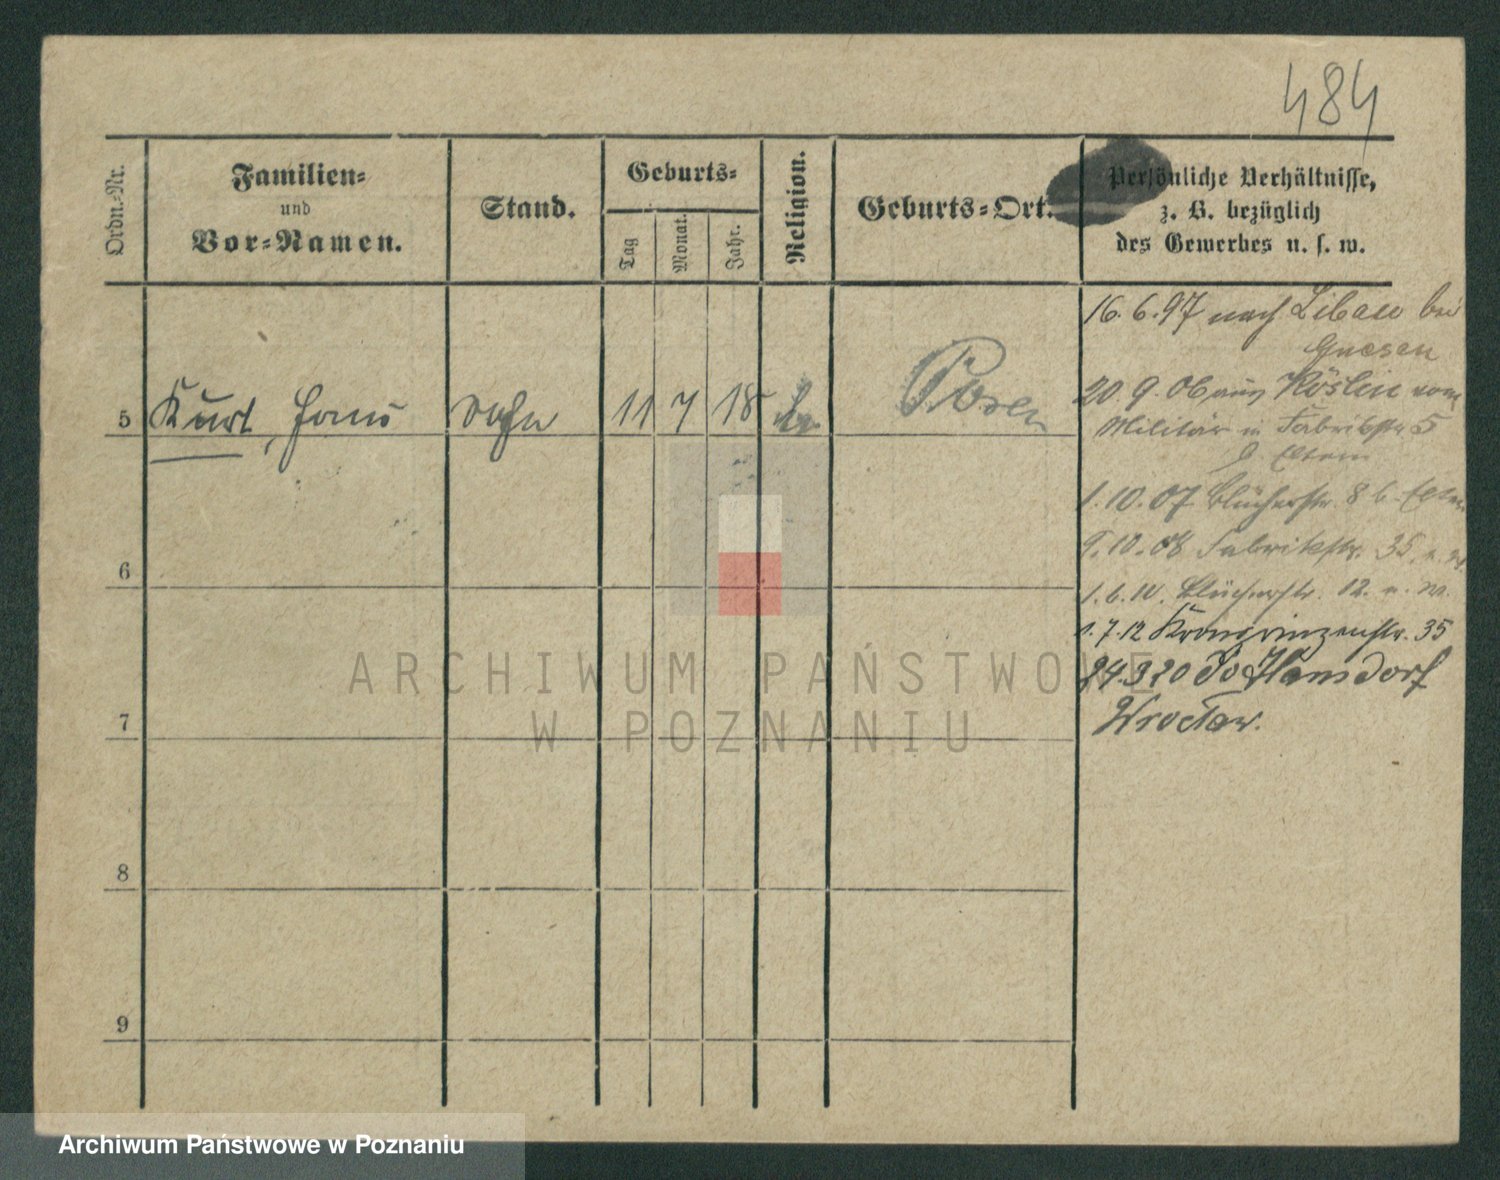 484
Ordn.-Nr.
Familien-
und
Vor-Namen.
Stand.
Geburts-
Tag
Monat.
Jahr.
Religion.
Geburts-Ort.
Persönliche Verhältnisse,
z. B. bezüglich
des Gewerbes u. s. w.
16.6.97 nach Libau bei
Gnesen
5 Kurt, Hans Sohn 11 7 18 Posen
20.9.06 aus Köslin vom
Militär in Fabrikstr 5
b. Eltern
1.10.07 Blücherstr. 8 b. Eltern
9.10.08 Fabrikstr. 35.
1.6.10. Blücherstr. 12.
1.7.12 Kronprinzenstr. 35
24.3.20 Hansdorf
Wrocław.
6
7
8
9
ARCHIWUM PAŃSTWOWE
W POZNANIU
Archiwum Państwowe w Poznaniu